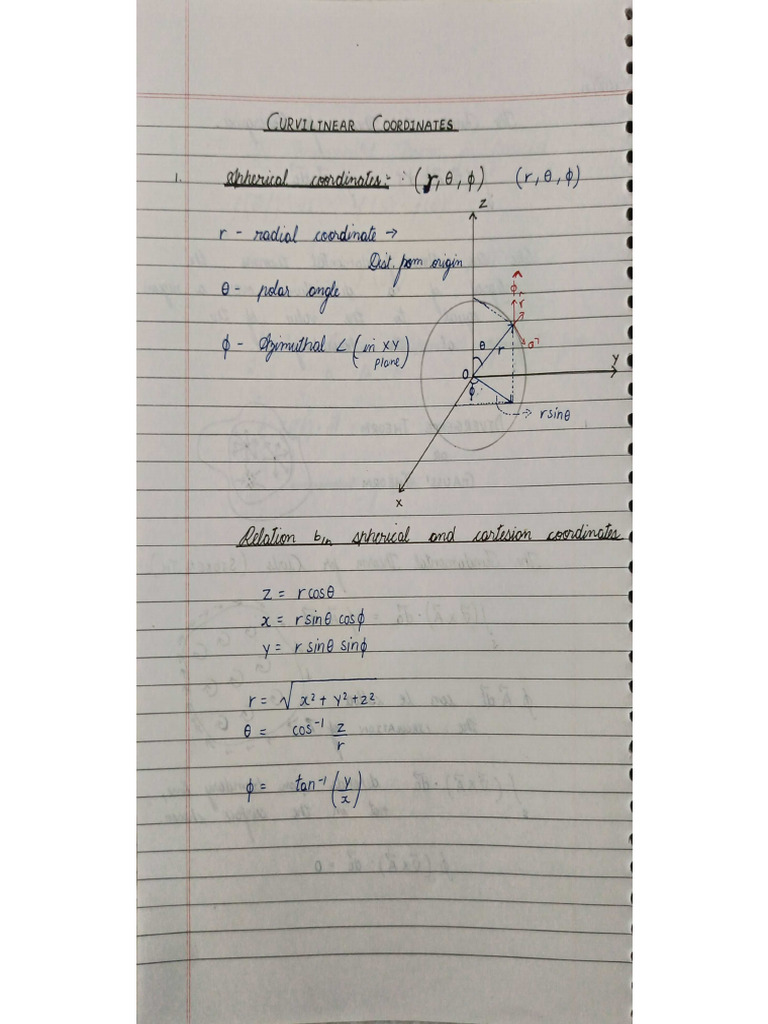 CURVILINEAR COORDINATES
1. Spherical coordinates:- (r, θ, φ) (r, θ, φ)
r - radial coordinate →
Dist. from origin
θ - polar angle
φ - Azimuthal ∠ (in XY
plane)
Z
φ̂
r̂
θ̂
θ
r
Y
O
φ
→ rsinθ
X
Relation b/n spherical and cartesian coordinates
z = rcosθ
x = rsinθ cosφ
y = rsinθ sinφ
r = √x² + y² + z²
θ = cos⁻¹ z/r
φ = tan⁻¹ (y/x)